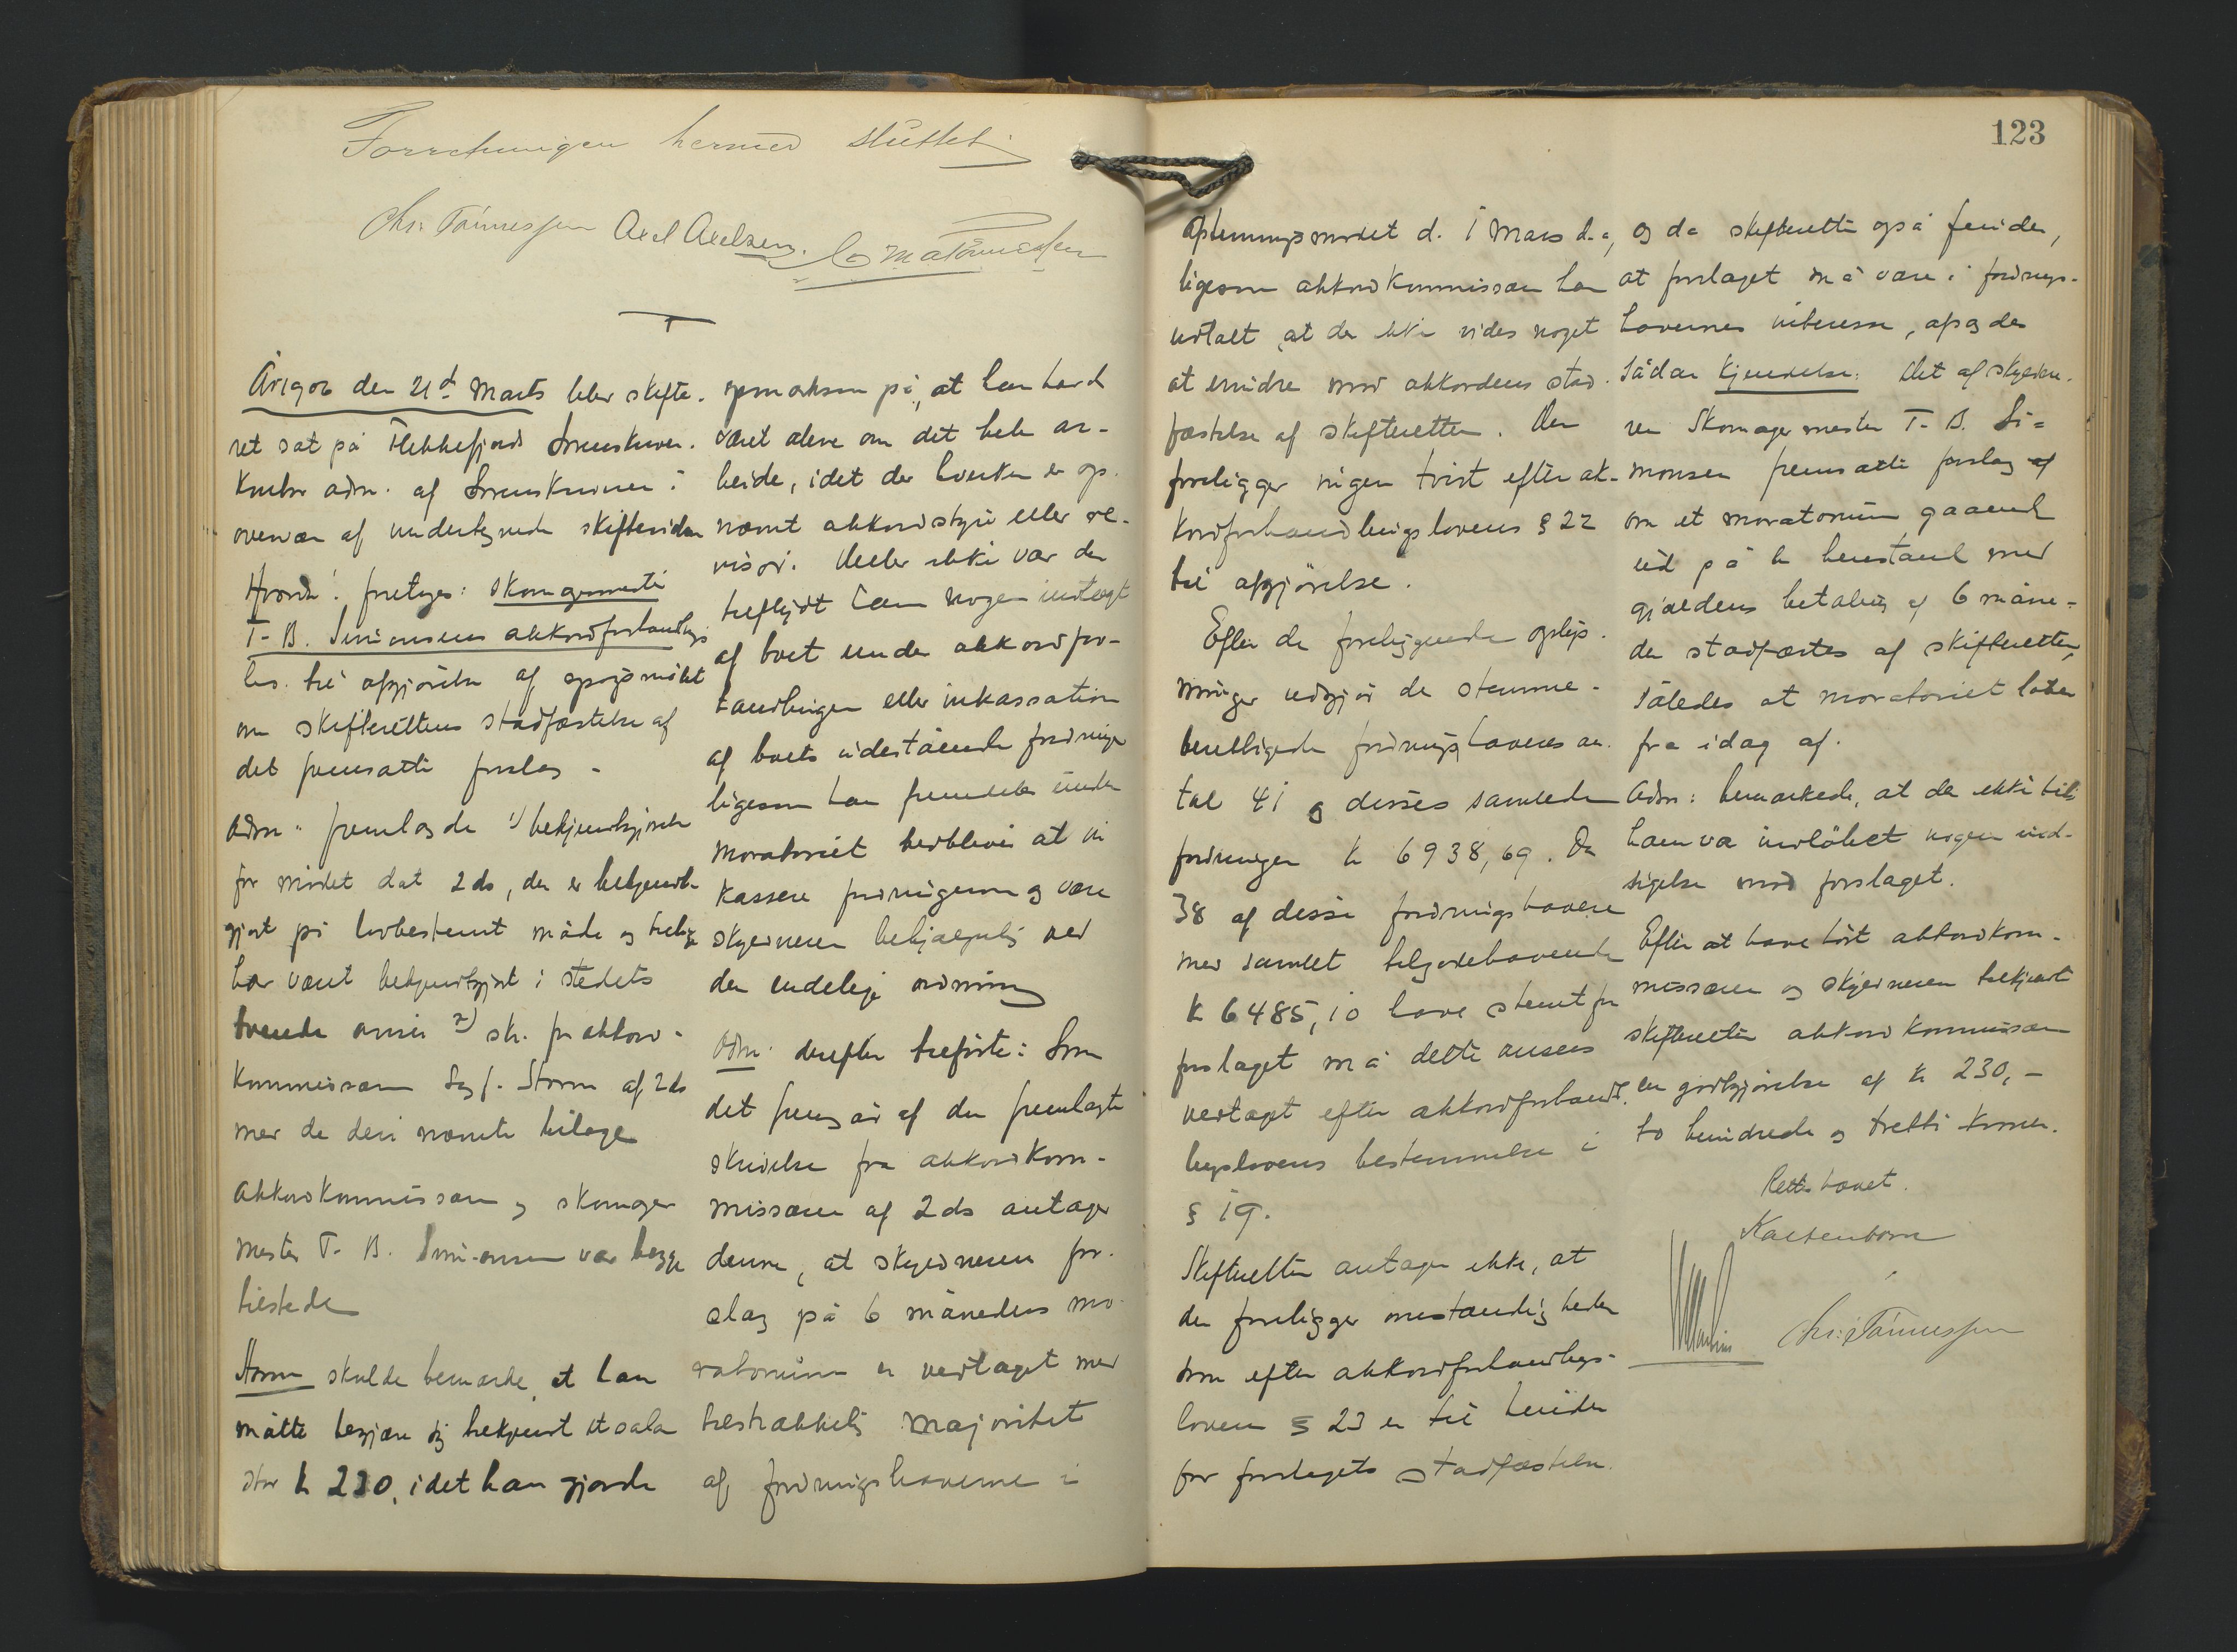 Forretningen hermed sluttet
Chr. Tønnessen Axel Axelsen.
År 1906 den 21de Marts blev skifte-
ret sat på Flekkefjords Sorenskriver-
kontor adm. af Sorenskriveren i
overvær af undertegnede skiftevidner
Hvorda: foretoges: Skomagermester
T. B. Simonsens akkordforhandlings
bes. til afgjørelse af spørgsmålet
om skifterettens stadfæstelse af
det fremsatte forslag -
Adm. fremlagde 1) bekjendtgjørelse
for mødet dat 2 ds, der er bekjendt-
gjort på lovbestemt måde og
har været bekjendtgjort i stedets
tvende aviser 2) skr. fra akkord-
kommissæren Storm af 2 ds
med de deri nævnte bilage
Akkordkommissæren og skomager
mester T. B. Simonsen var begge
tilstede
Storm skulde bemærke, at han
måtte begjære sig tilkjendt et salær
stor k 230, idet han gjorde
opmærksom på, at han havde
været alene om det hele ar-
beide, idet der hverken er op-
nævnt akkordstyre eller re-
visor. Heller ikke var der
tilflydt ham nogen indtægt
af boet under akkordfor-
handlingen eller inkassation
af boets udestående fordringer
ligesom han fremdeles under
moratoriet vedblev at in
kassere fordringerne og være
skyldneren behjælpelig ved
den endelige ordning
Adm. derefter tilførte: Som
det fremgår af den fremlagte
skrivelse fra akkordkom-
missæren af 2 ds antager
denne, at skyldnerens for-
slag på 6 måneders mo-
ratorium er vedtaget med
tilstrækkelig majoritet
af fordringshaverne i
123
afstemningsmødet d. 1 Mars d.a,
ligesom akkordkommissæren har
udtalt, at der ikke vides noget
at erindre mod akkordens stad-
fæstelse af skifteretten. Der
foreligger ingen tvist efter ak-
kordforhandlingslovens § 22
til afgjørelse.
Efter de foreliggende oplys-
ninger udgjør de stemme-
berettigede fordringshaveres an-
tal 41 og disses samlede
fordringer k 6938,69. Da
38 af disse fordringshavere
med samlet tilgodehavende
k 6485,10 have stemt for
forslaget må dette ansees
vedtaget efter akkordforhand-
lingslovens bestemmelse i
§ 19.
Skifteretten antager ikke, at
der foreligger omstændigheder
som efter akkordforhandlings-
loven § 23 er til hinder
for forslagets stadfæstelse.
og da skifteretten også finder,
at forslaget må være i fordrings-
havernes interesse, afsagdes
sådan kjendelse: Det af skyldne-
ren Skomagermester T. B. Si-
monsen fremsatte forslag
om et moratorium gaaende
ud på henstand med
gjældens betaling af 6 måne-
der stadfæstes af skifteretten,
således at moratoriet løber
fra idag af.
Adm: bemærkede, at der ikke til
ham var indløbet nogen ind-
sigelse mod forslaget.
Efter at have hørt akkordkom-
missæren og skyldneren tilkjendte
skifteretten akkordkommissæren
en godtgjørelse af k 230,-
to hundrede og tretti kroner.
Retten hævet.
Kaltenborn
Chr. Tønnessen